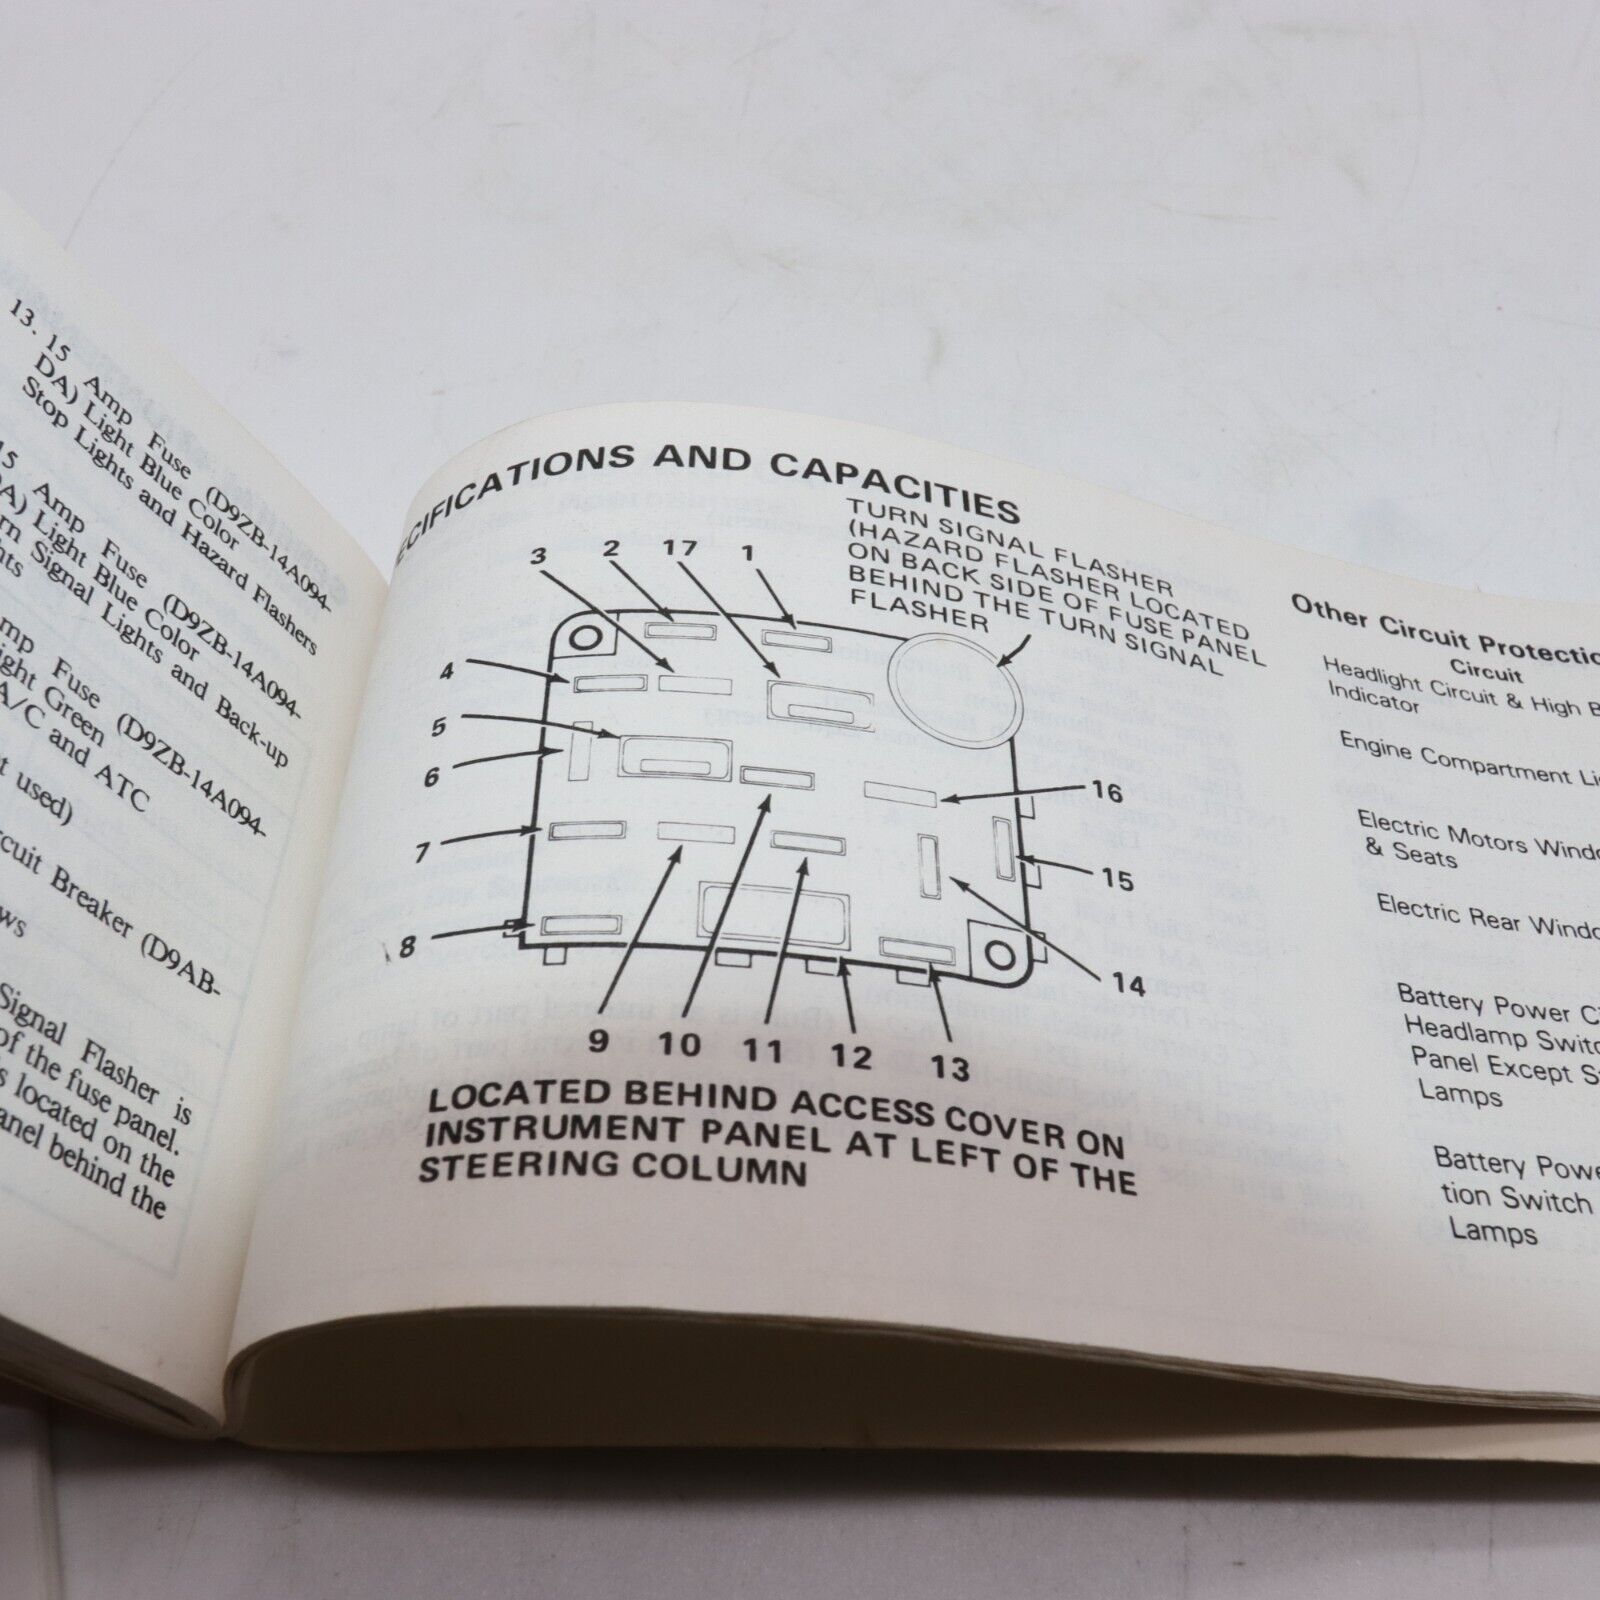 13. 15 Amp Fuse (D9ZB-14A094-
DA) Light Blue Color
Stop Lights and Hazard Flashers
15 Amp Fuse (D9ZB-14A094-
DA) Light Blue Color
Signal Lights and Back-up
Fuse (D9ZB-14A094-
Green
A/C and ATC
used)
Breaker (D9AB-
Signal Flasher is
of the fuse panel.
located on the
behind the
AND CAPACITIES
TURN SIGNAL FLASHER
(HAZARD FLASHER LOCATED
ON BACK SIDE OF FUSE PANEL
BEHIND THE TURN SIGNAL
FLASHER
3 2 17 1
4
5
6
7
8
16
15
14
9 10 11 12 13
LOCATED BEHIND ACCESS COVER ON
INSTRUMENT PANEL AT LEFT OF THE
STEERING COLUMN
Other Circuit
Circuit
Headlight Circuit & High
Indicator
Engine Compartment
Electric Motors
& Seats
Electric Rear
Battery Power
Headlamp
Panel Except
Lamps
Battery
tion Switch
Lamps